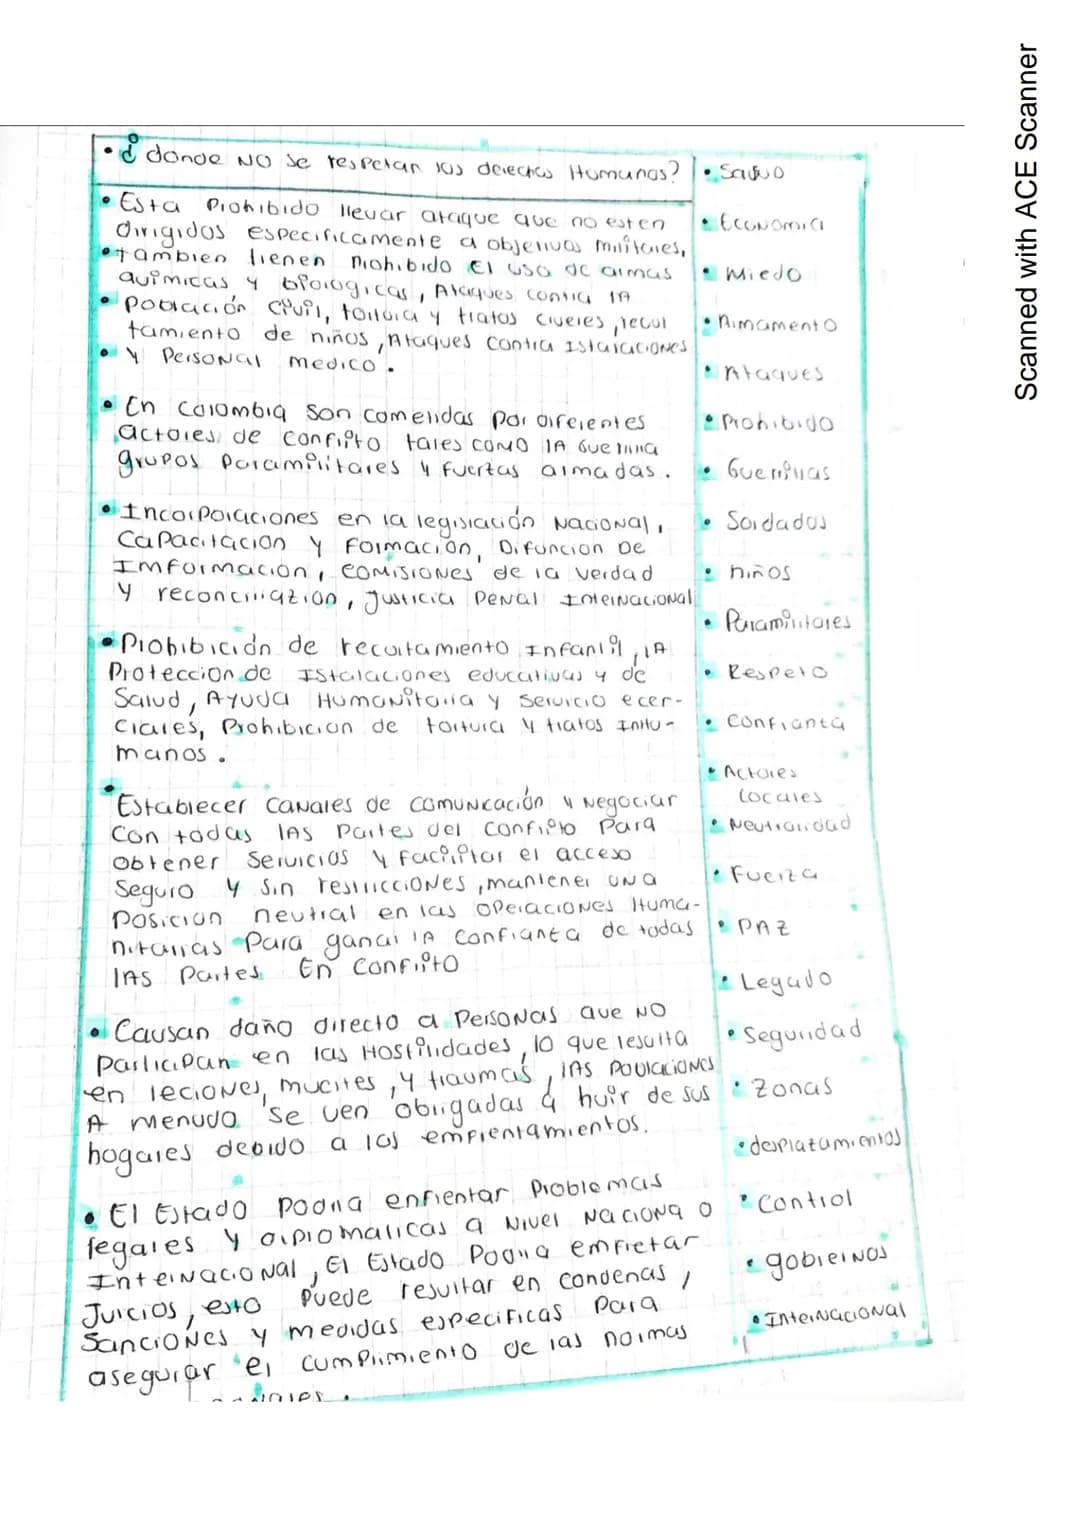 • ¿ donde NO se respetan los derechos Humanos?
• Esta Prohibido llevar ataque que no esten
dirigidos especificamente a objetivos militares,
• tambien tienen prohibido El uso de armas
quimicas y biologicas, Ataques contra lA
• población civil, tortura y tratos crueles, reclu
tamiento de niños, Ataques contra Istalaciones
• Y Personal medico.
• En colombia son cometidas por diferentes
actores de conflito tales como lA Guerrilla
grupos Paramilitares y fuerzas armadas.
• Incorporaciones en la legislación Nacional,
Capacitacion y Formación, Difuncion De
Imformacion, comisiones de la verdad
y reconciliazion, justicia Penal Internacional
• Prohibición de reclutamiento Infantil, lA
Proteccion de Istalaciones educativas y de
Salud, Ayuda Humanitaria y servicio ecer-
ciales, Prohibicion de tortura y tratos Inhu-
manos.
• Establecer canales de comunicación y Negociar
con todas lAs Partes del conflito Para
obtener servicios y facilitar el acceso
Seguro y sin restricciones, mantener una
posicion neutral en las operaciones Huma-
nitarias Para ganar lA confianza de todas
lAs Partes En conflito
• Causan daño directo a Personas que No
Participan en las Hostilidades, lo que resulta
en leciones, muertes, y traumas, lAs Poblaciones
A menudo se ven obligadas a huir de sus
hogares debido a los emfrentamientos.
• El Estado podria enfrentar Problemas
legales y diplomaticas a Nivel Naciona o
Internacional, El Estado Podria emfretar
Juicios, esto puede resultar en condenas,
Sanciones y medidas especificas Para
asegurar el cumplimiento de las normas
• Salvo
• Economica
• Miedo
• Armamento
• Ataques
• Prohibido
• Guerrillas
• Soldados
• niños
• Paramilitares
• Respeto
• Confianza
• Actores
Locales
• Neutralidad
• Fuerza
• PAZ
• Legado
• Seguridad
• Zonas
• desplazamientos
• control
• gobiernos
• Internacional
Scanned with ACE Scanner